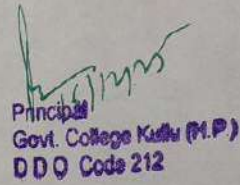 Principal
Govt. College Kullu (H.P.)
D D O Code 212